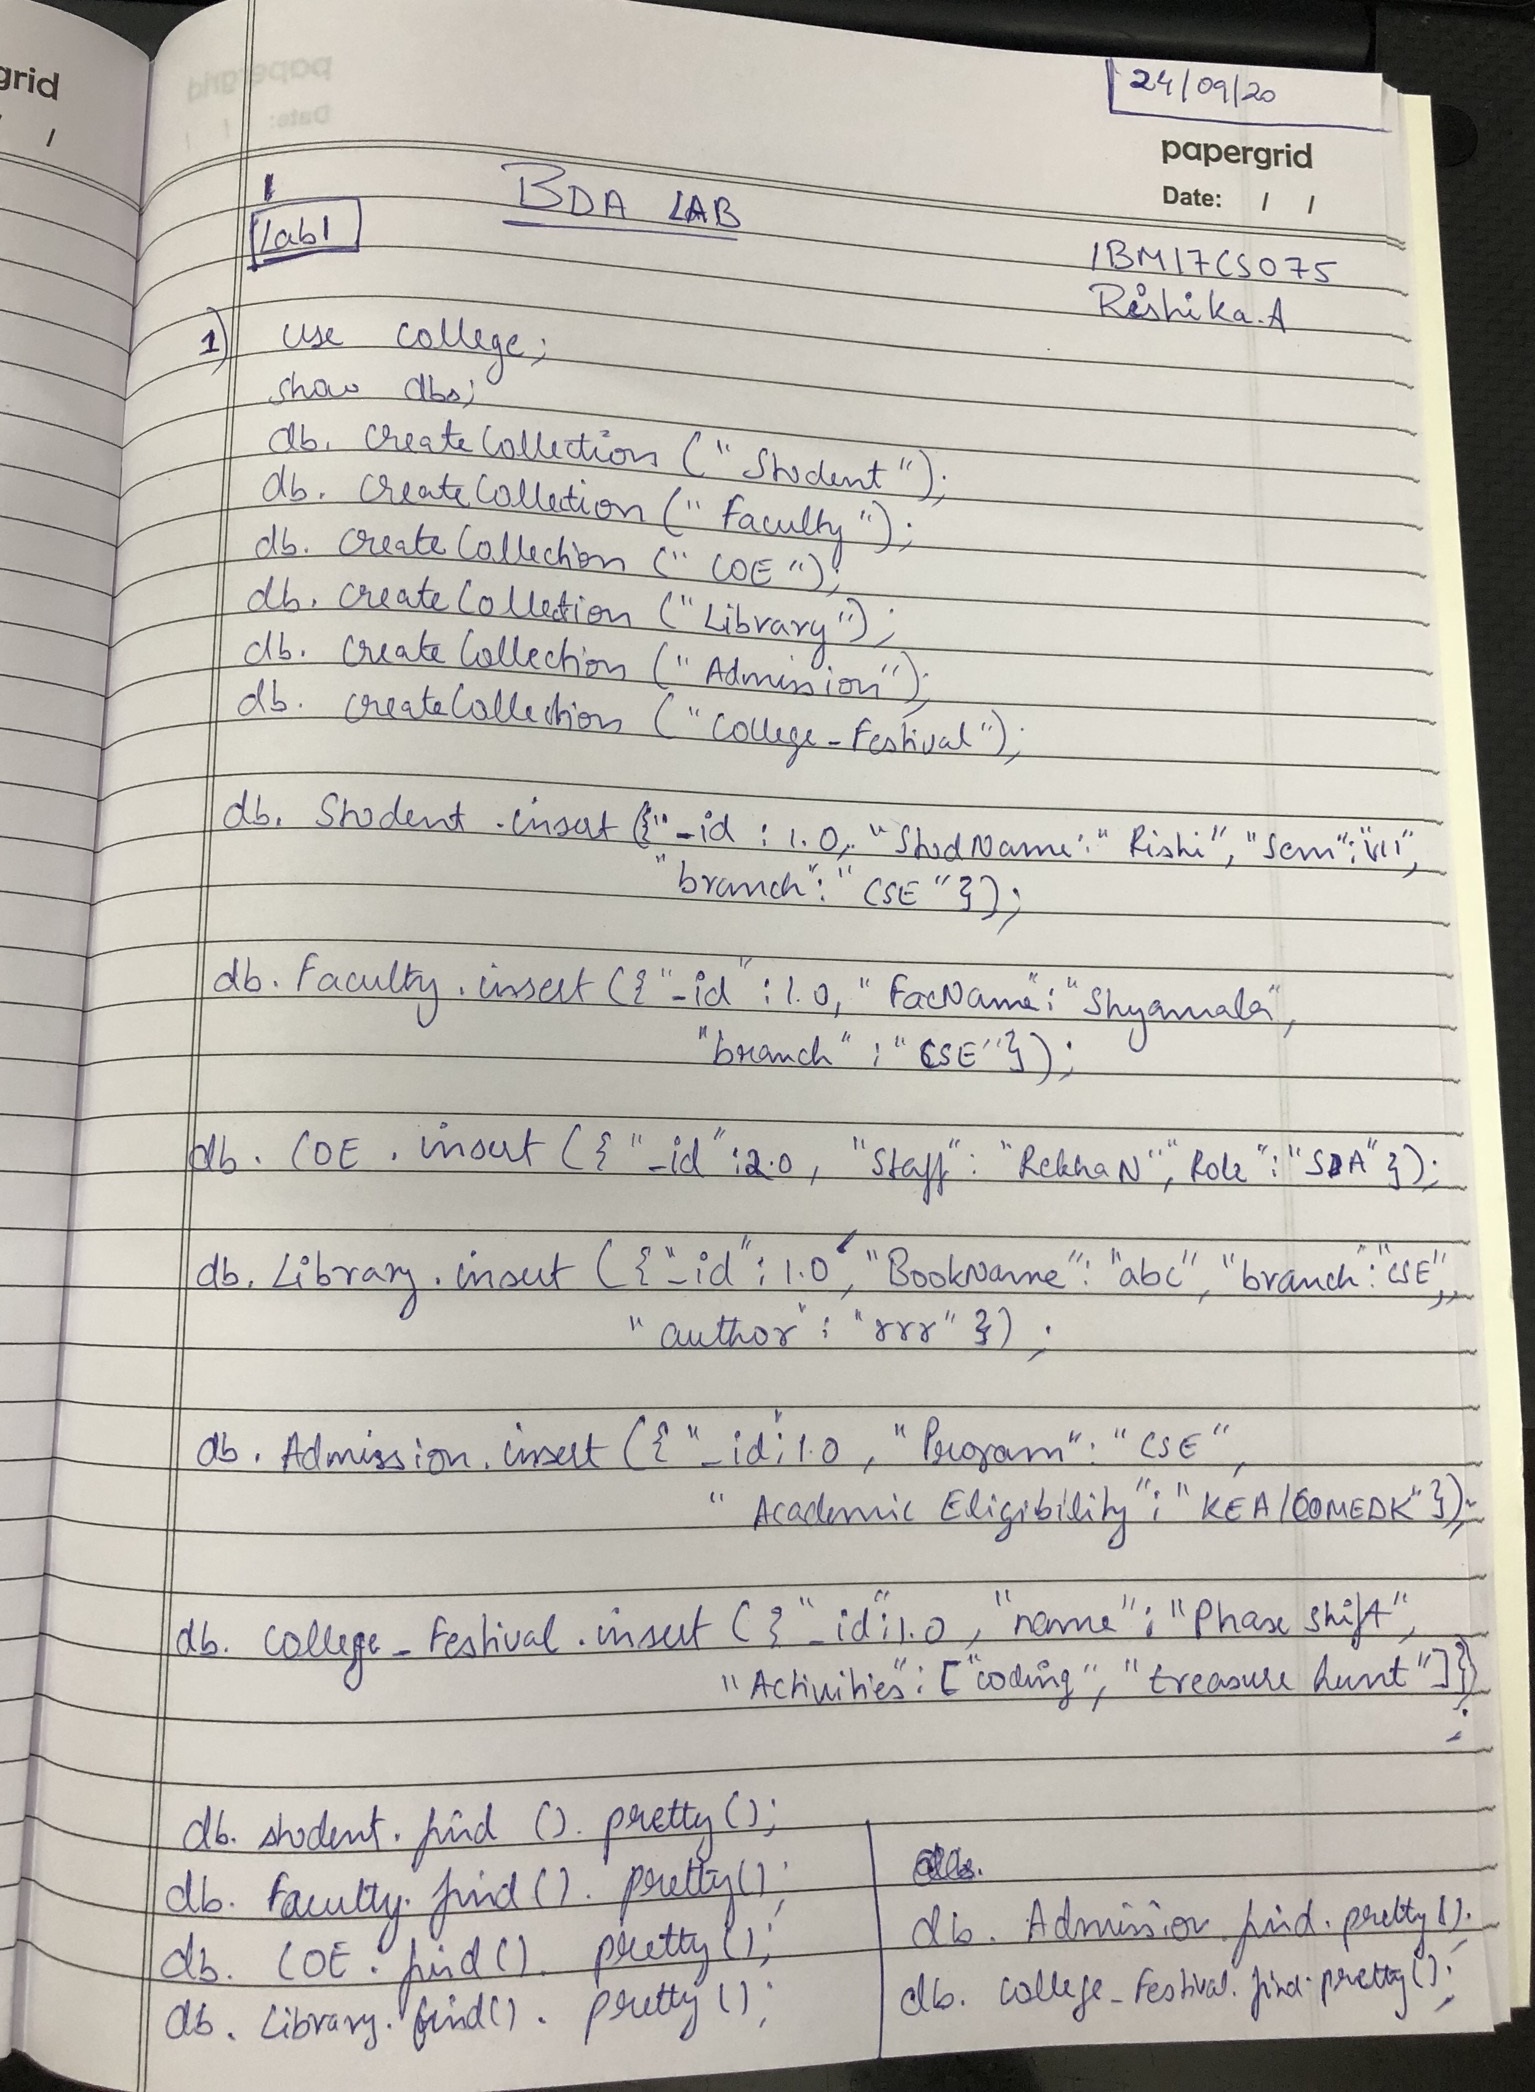 grid
/
papergrid
Date: / /
24/09/20
papergrid
Date: / /
BDA LAB
Lab1
1BM17CS075
Rishika.A
1) use college;
show dbs;
db. createCollection ("Student");
db. createCollection ("Faculty");
db. createCollection ("COE");
db. createCollection ("Library");
db. createCollection ("Admission");
db. createCollection ("College_Festival");
db. Student .insert ({"_id : 1.0, "StudName": "Rishi", "Sem": "VII",
"branch": "CSE"});
db. Faculty. insert ({"_id" : 1.0, "FacName": "Shyamala",
"branch" : "CSE"});
db. COE . insert ({ "_id" :2.0, "Staff": "Rekha N", Role": "SDA"});
db. Library. insert ({"_id": 1.0, "BookName": "abc", "branch": "CSE",
"author": "rrr"});
db. Admission. insert ({ "_id": 1.0, "Program": "CSE",
"Academic Eligibility": "KEA/COMEDK"});
db. College_Festival .insert ({"_id":1.0, "name": "Phase Shift",
"Activities": ["coding", "treasure hunt"]})
;
db. student. find (). pretty();
db. Faculty. find(). pretty();
db. COE. find(). pretty();
db. Library. find(). pretty();
db. Admission. find. pretty();
db. College_Festival. find. pretty();